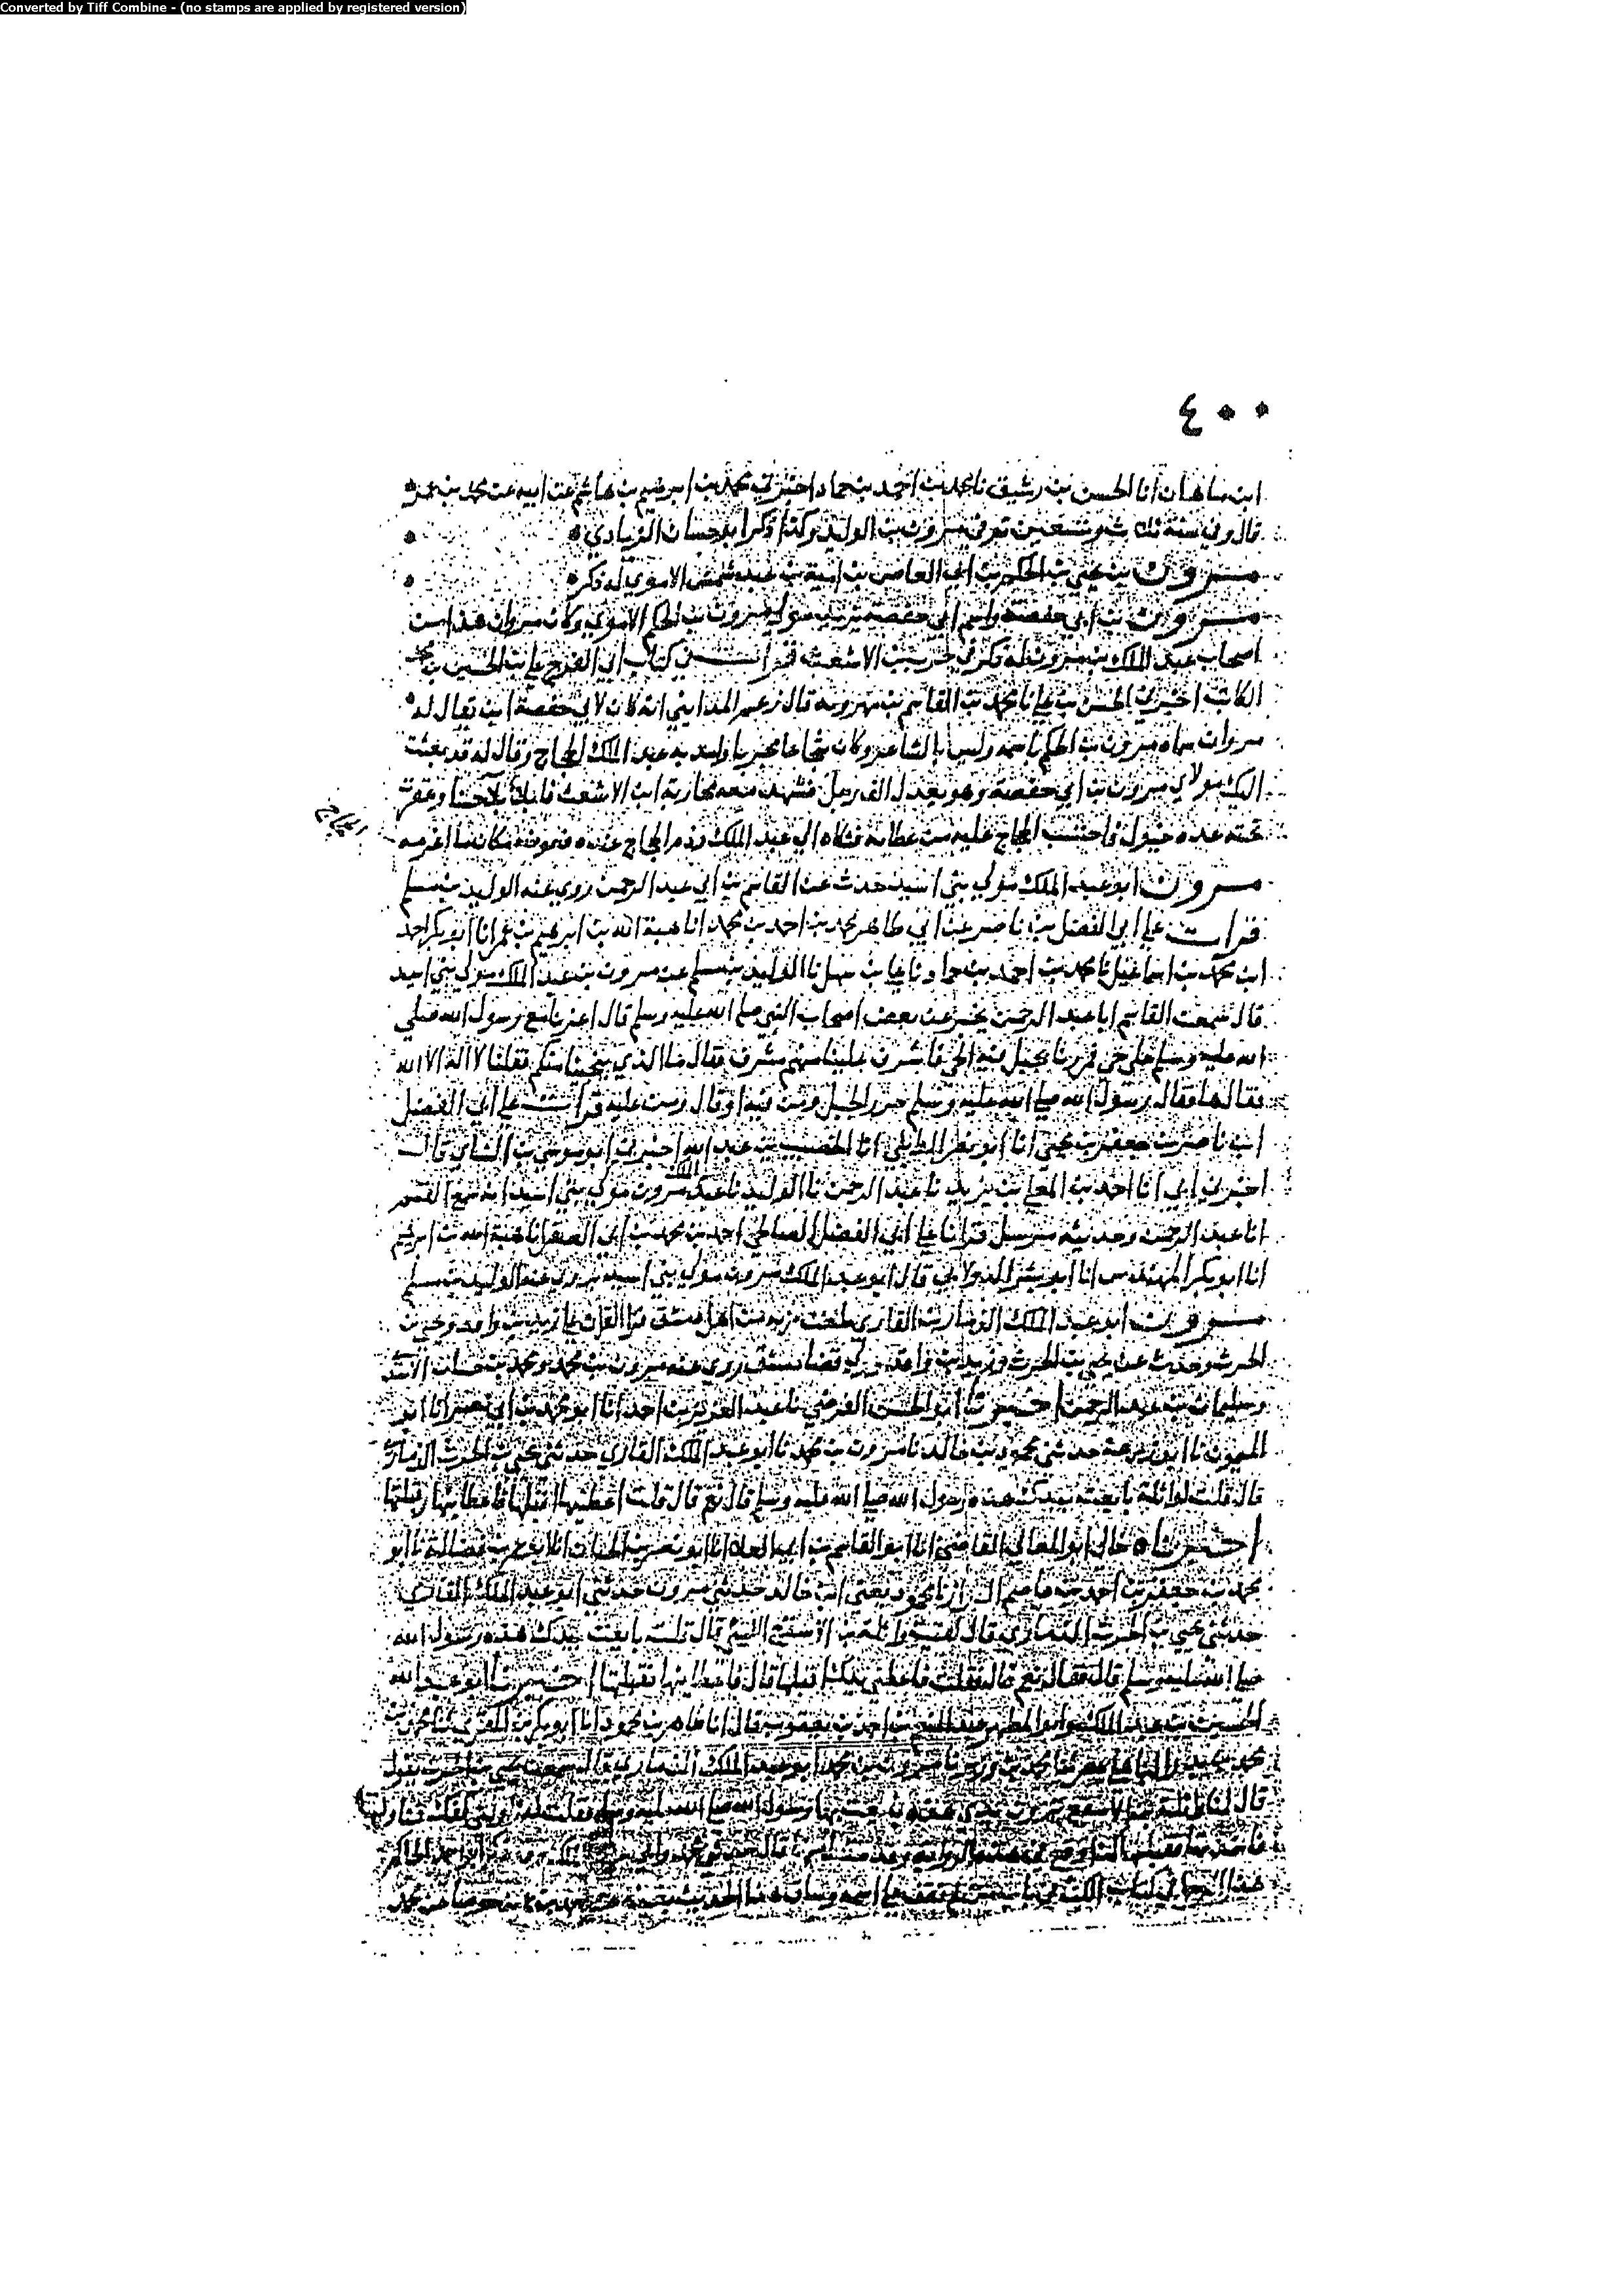 Converted by Tiff Combine - (no stamps are applied by registered version)
٤٠٠
ابن ماهان انا الحسن بن رشيق نا محمد بن احمد بن حماد اخبرني محمد بن ابرهيم بن هاشم عن ابيه عن محمد بن عمر
قال وفي سنة ثلث وتسعين توفي مرون بن الوليد وكذا ذكر ابو حسان الزيادي
مرون بن يحيى بن الحكم بن ابي العاص بن امية بن عبد شمس الاموي له ذكر
مرون بن ابي حفصة واسم ابي حفصة يزيد مولى مرون بن الحكم الاموي وكان مروان هذا من
اصحاب عبد الملك بن مرون له ذكر في حرب ابن الاشعث قرات في كتاب ابي الفرج علي بن الحسين بن محمد
الكاتب اخبرني الحسن بن علي نا محمد بن القاسم بن مهرويه قال زعم المدايني انه كان لابي حفصة ابن يقال له
مروان سماه مرون بن الحكم باسمه وليس بالشاعر وكان شجاعا مجربا وامد به عبد الملك الحجاج وقال له قد بعثت
اليك مولاي مرون بن ابي حفصة وهو يعدل الف رجل فشهد معه محاربة ابن الاشعث فابلى بلاء حسنا وعقرت
تحته عدة خيول فاحتسب الحجاج عليه من عطائه فشكاه الى عبد الملك وذم الحجاج عنده فعوضه مكان ما اغرمه
الحجاج
مرون ابو عبد الملك مولى بني اسيد حدث عن القاسم بن ابي عبد الرحمن روى عنه الوليد بن مسلم
قرات على ابي الفضل بن ناصر عن ابي طاهر محمد بن احمد بن محمد انا هبة الله بن ابرهيم بن عمر انا ابو بكر احمد
ابن محمد بن اسماعيل نا محمد بن احمد بن حماد نا علي بن سهل نا الوليد بن مسلم عن مرون بن عبد الملك مولى بني اسيد
قال سمعت القاسم ابا عبد الرحمن يخبر عن بعض اصحاب النبي صلى الله عليه وسلم قال اغزنا مع رسول الله صلى
الله عليه وسلم على حي فمررنا بجبل فيه الحي فاشرف علينا منهم مشرف فقال ما الذي ينجينا منكم فقلنا لا اله الا الله
فقالها فقال رسول الله صلى الله عليه وسلم حرز الجبل ومن فيه او قال ومن عليه قرات على ابي الفضل
ابن ناصر عن جعفر بن يحيى انا ابو نصر الوايلي انا الخصيب بن عبد الله اخبرني ابو موسى بن النسائي قال
اخبرني ابي انا احمد بن المعلى بن يزيد نا عبد الرحمن نا الوليد نا عبد الملك مرون مولى بني اسيد انه سمع القسم
انا عبد الرحمن وحديثه مرسل قرانا على ابي الفضل الصالحي احمد بن محمد بن ابي الصقر انا هبة الله بن ابرهيم
انا ابو بكر المهندس انا ابو بشر الدولابي قال ابو عبد الملك مرون مولى بني اسيد يروي عنه الوليد بن مسلم
مرون ابو عبد الملك الذماري القاري من اهل دمشق قرا القران على زيد بن واقد ويحيى بن
الحرث وحدث عن يحيى بن الحرث وزيد بن واقد ولي قضا دمشق روى عنه مرون بن محمد ومحمد بن حسان الاسدي
وسليمان بن عبد الرحمن اخبرنا ابو الحسن الفرضي نا عبد العزيز بن احمد انا ابو محمد بن ابي نصر انا ابو
الميمون نا ابو زرعة حدثني محمود بن خالد نا مرون بن محمد نا ابو عبد الملك القاري حدثني يحيى بن الحرث الذماري
قال قلت لواثلة بايعت بيدك هذه رسول الله صلى الله عليه وسلم قال نعم قال قلت اعطنيها اقبلها فاعطانيها فقبلتها
اخبرناه خالي ابو المعالي القاضي انا ابو القاسم بن ابي العلا انا ابو نصر بن الجبان انا ابو عمر بن فضالة نا ابو
محمد بن جعفر بن احمد بن عاصم البزاز نا محمود يعني ابن خالد حدثني مرون حدثني ابو عبد الملك القاري
حدثني يحيى بن الحرث الذماري قال لقيت واثلة بن الاسقع الليثي قال قلت بايعت بيدك هذه رسول الله
صلى الله عليه وسلم قال فقال نعم قال فقلت فاعطني يدك اقبلها قال فاعطانيها فقبلتها اخبرنا ابو عبد الله
الحسين بن عبد الملك وابو المطهر عبد المنعم بن احمد بن يعقوب قالا انا طاهر بن محمود انا ابو بكر بن المقري
مرون بن محمد ابو عبد الملك الذماري قال سمعت يحيى بن الحرث يقول
قال لنا واثلة بن الاسقع ترون يدي هذه بايعت بها رسول الله صلى الله عليه وسلم فقلت له ناولني كفك فناولنيها
فاخذتها فقبلتها